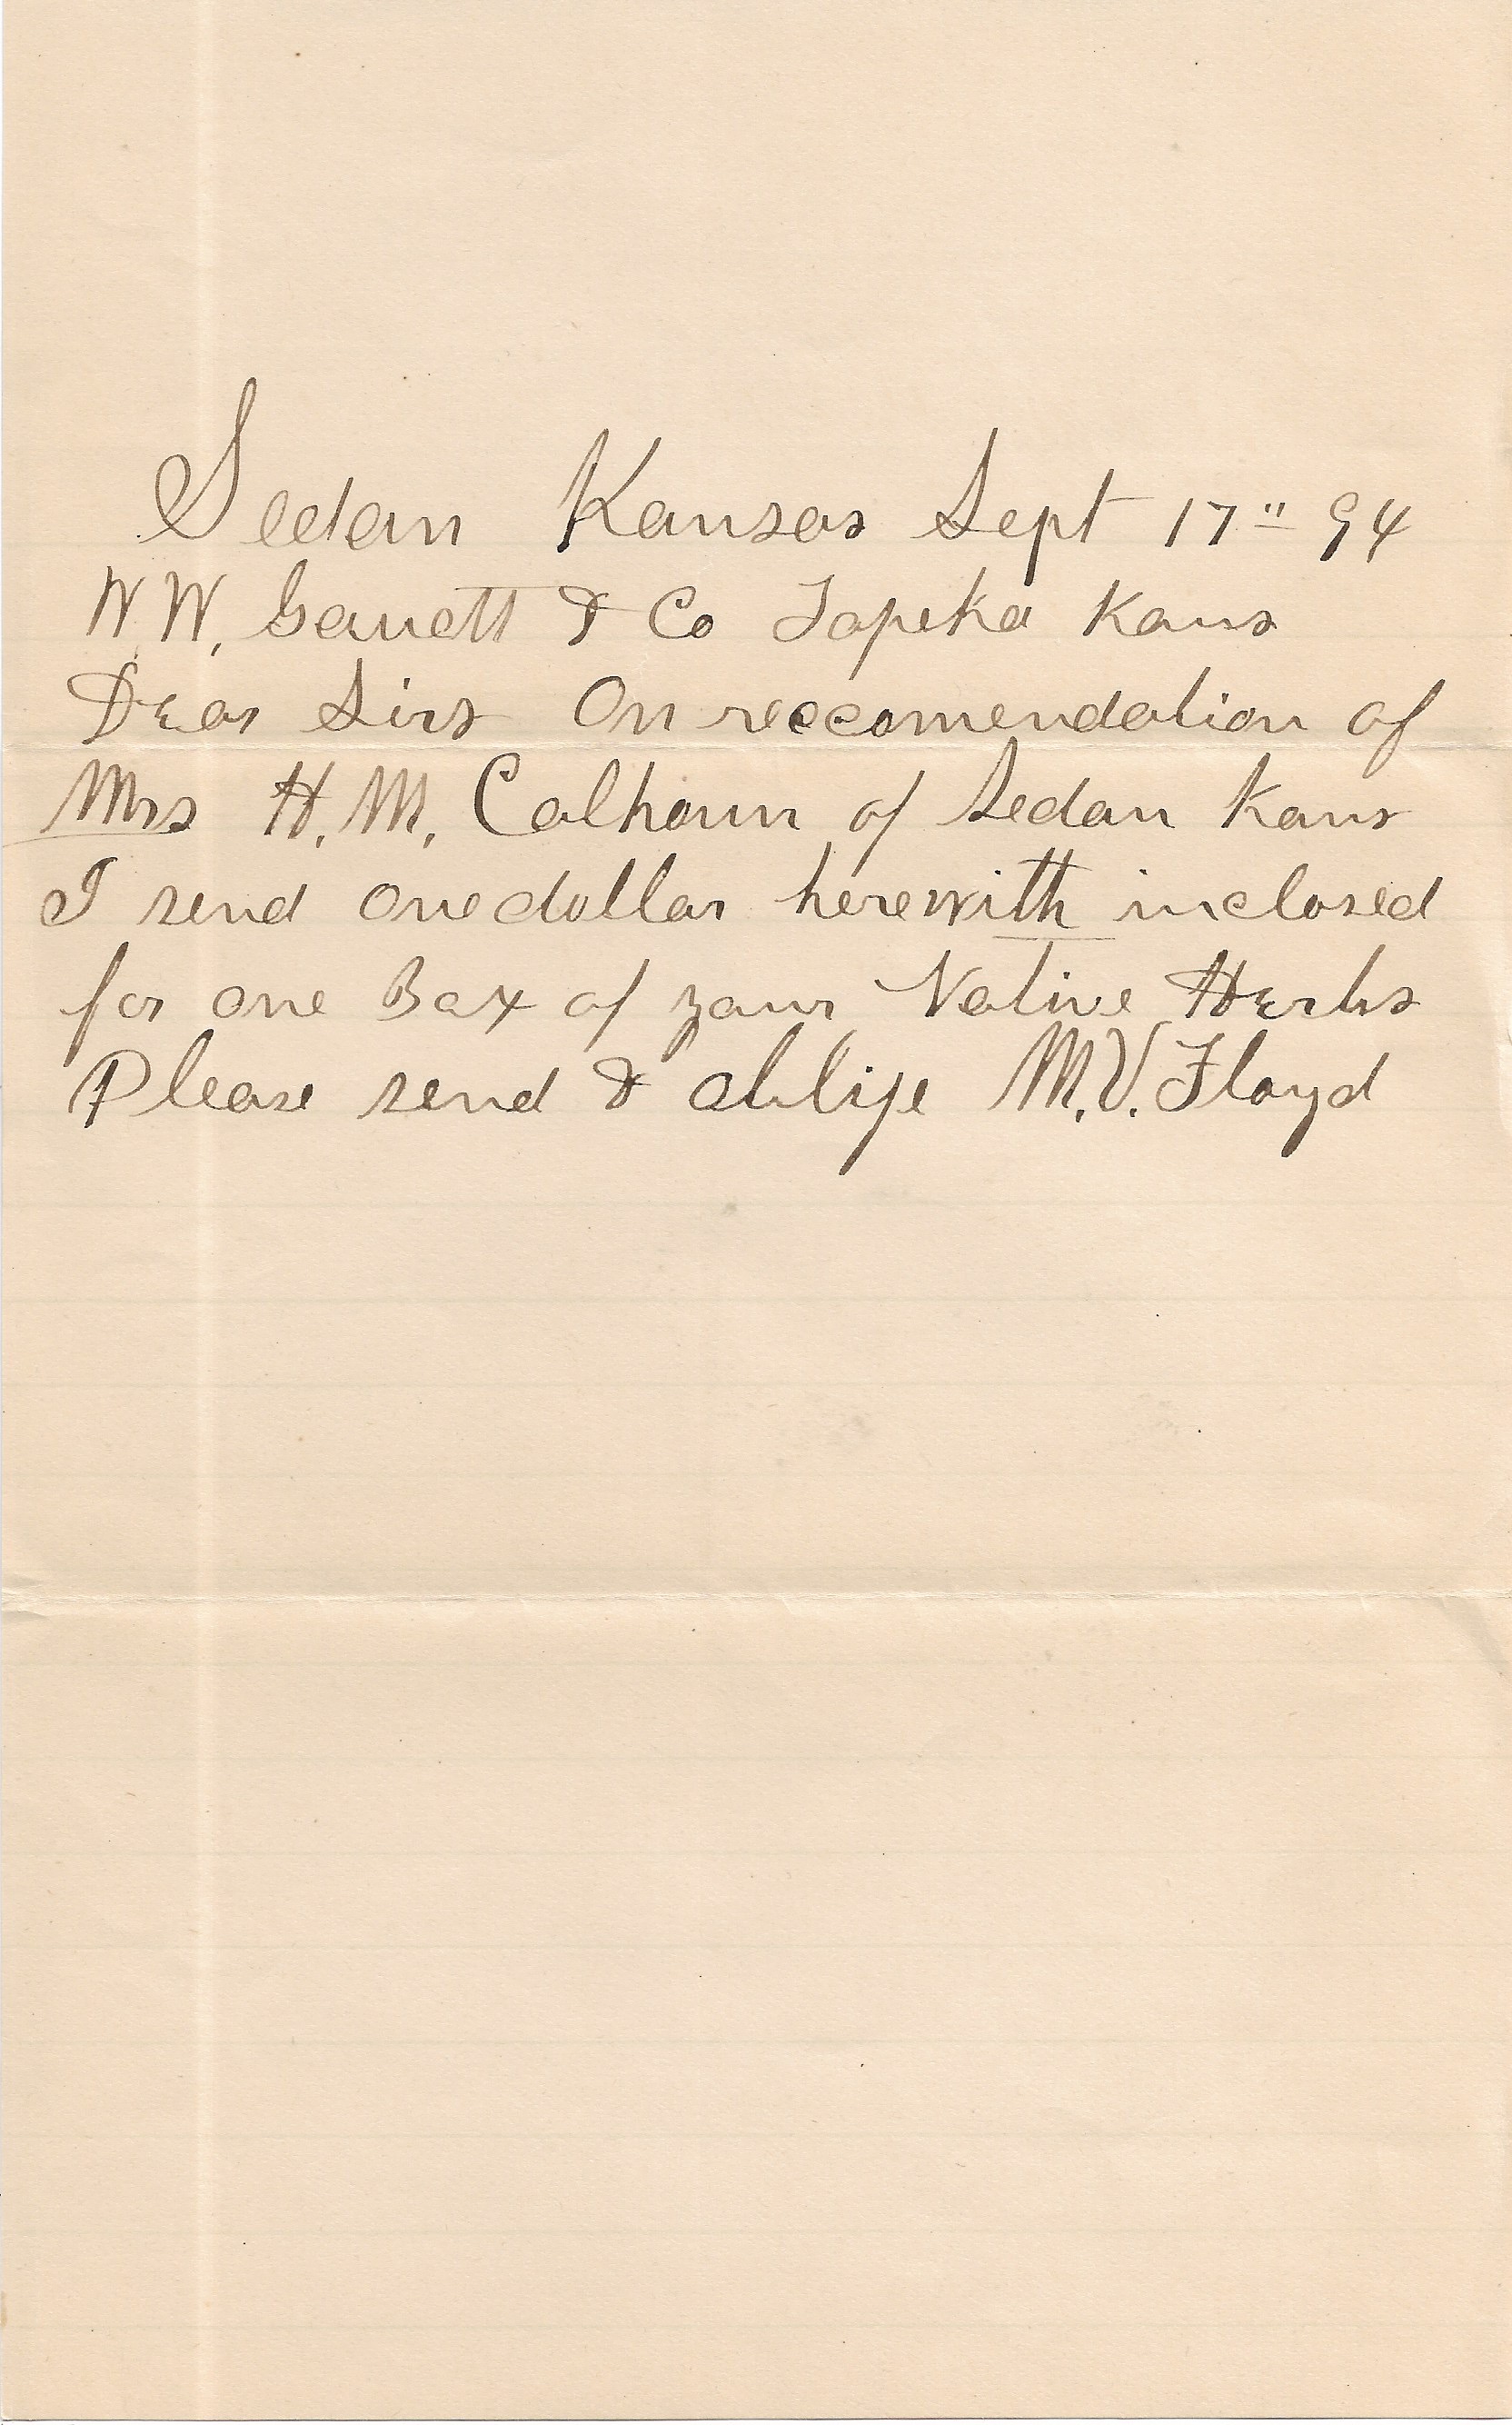 Sedan Kansas Sept 17" 94
W.W. Garrett & Co Topeka Kans
Dear Sirs On reccomendation of
Mrs H.M. Calhoun of Sedan Kans
I send one dollar herewith inclosed
for one Box of your Native Herbs
Please send & oblige M.V. Floyd